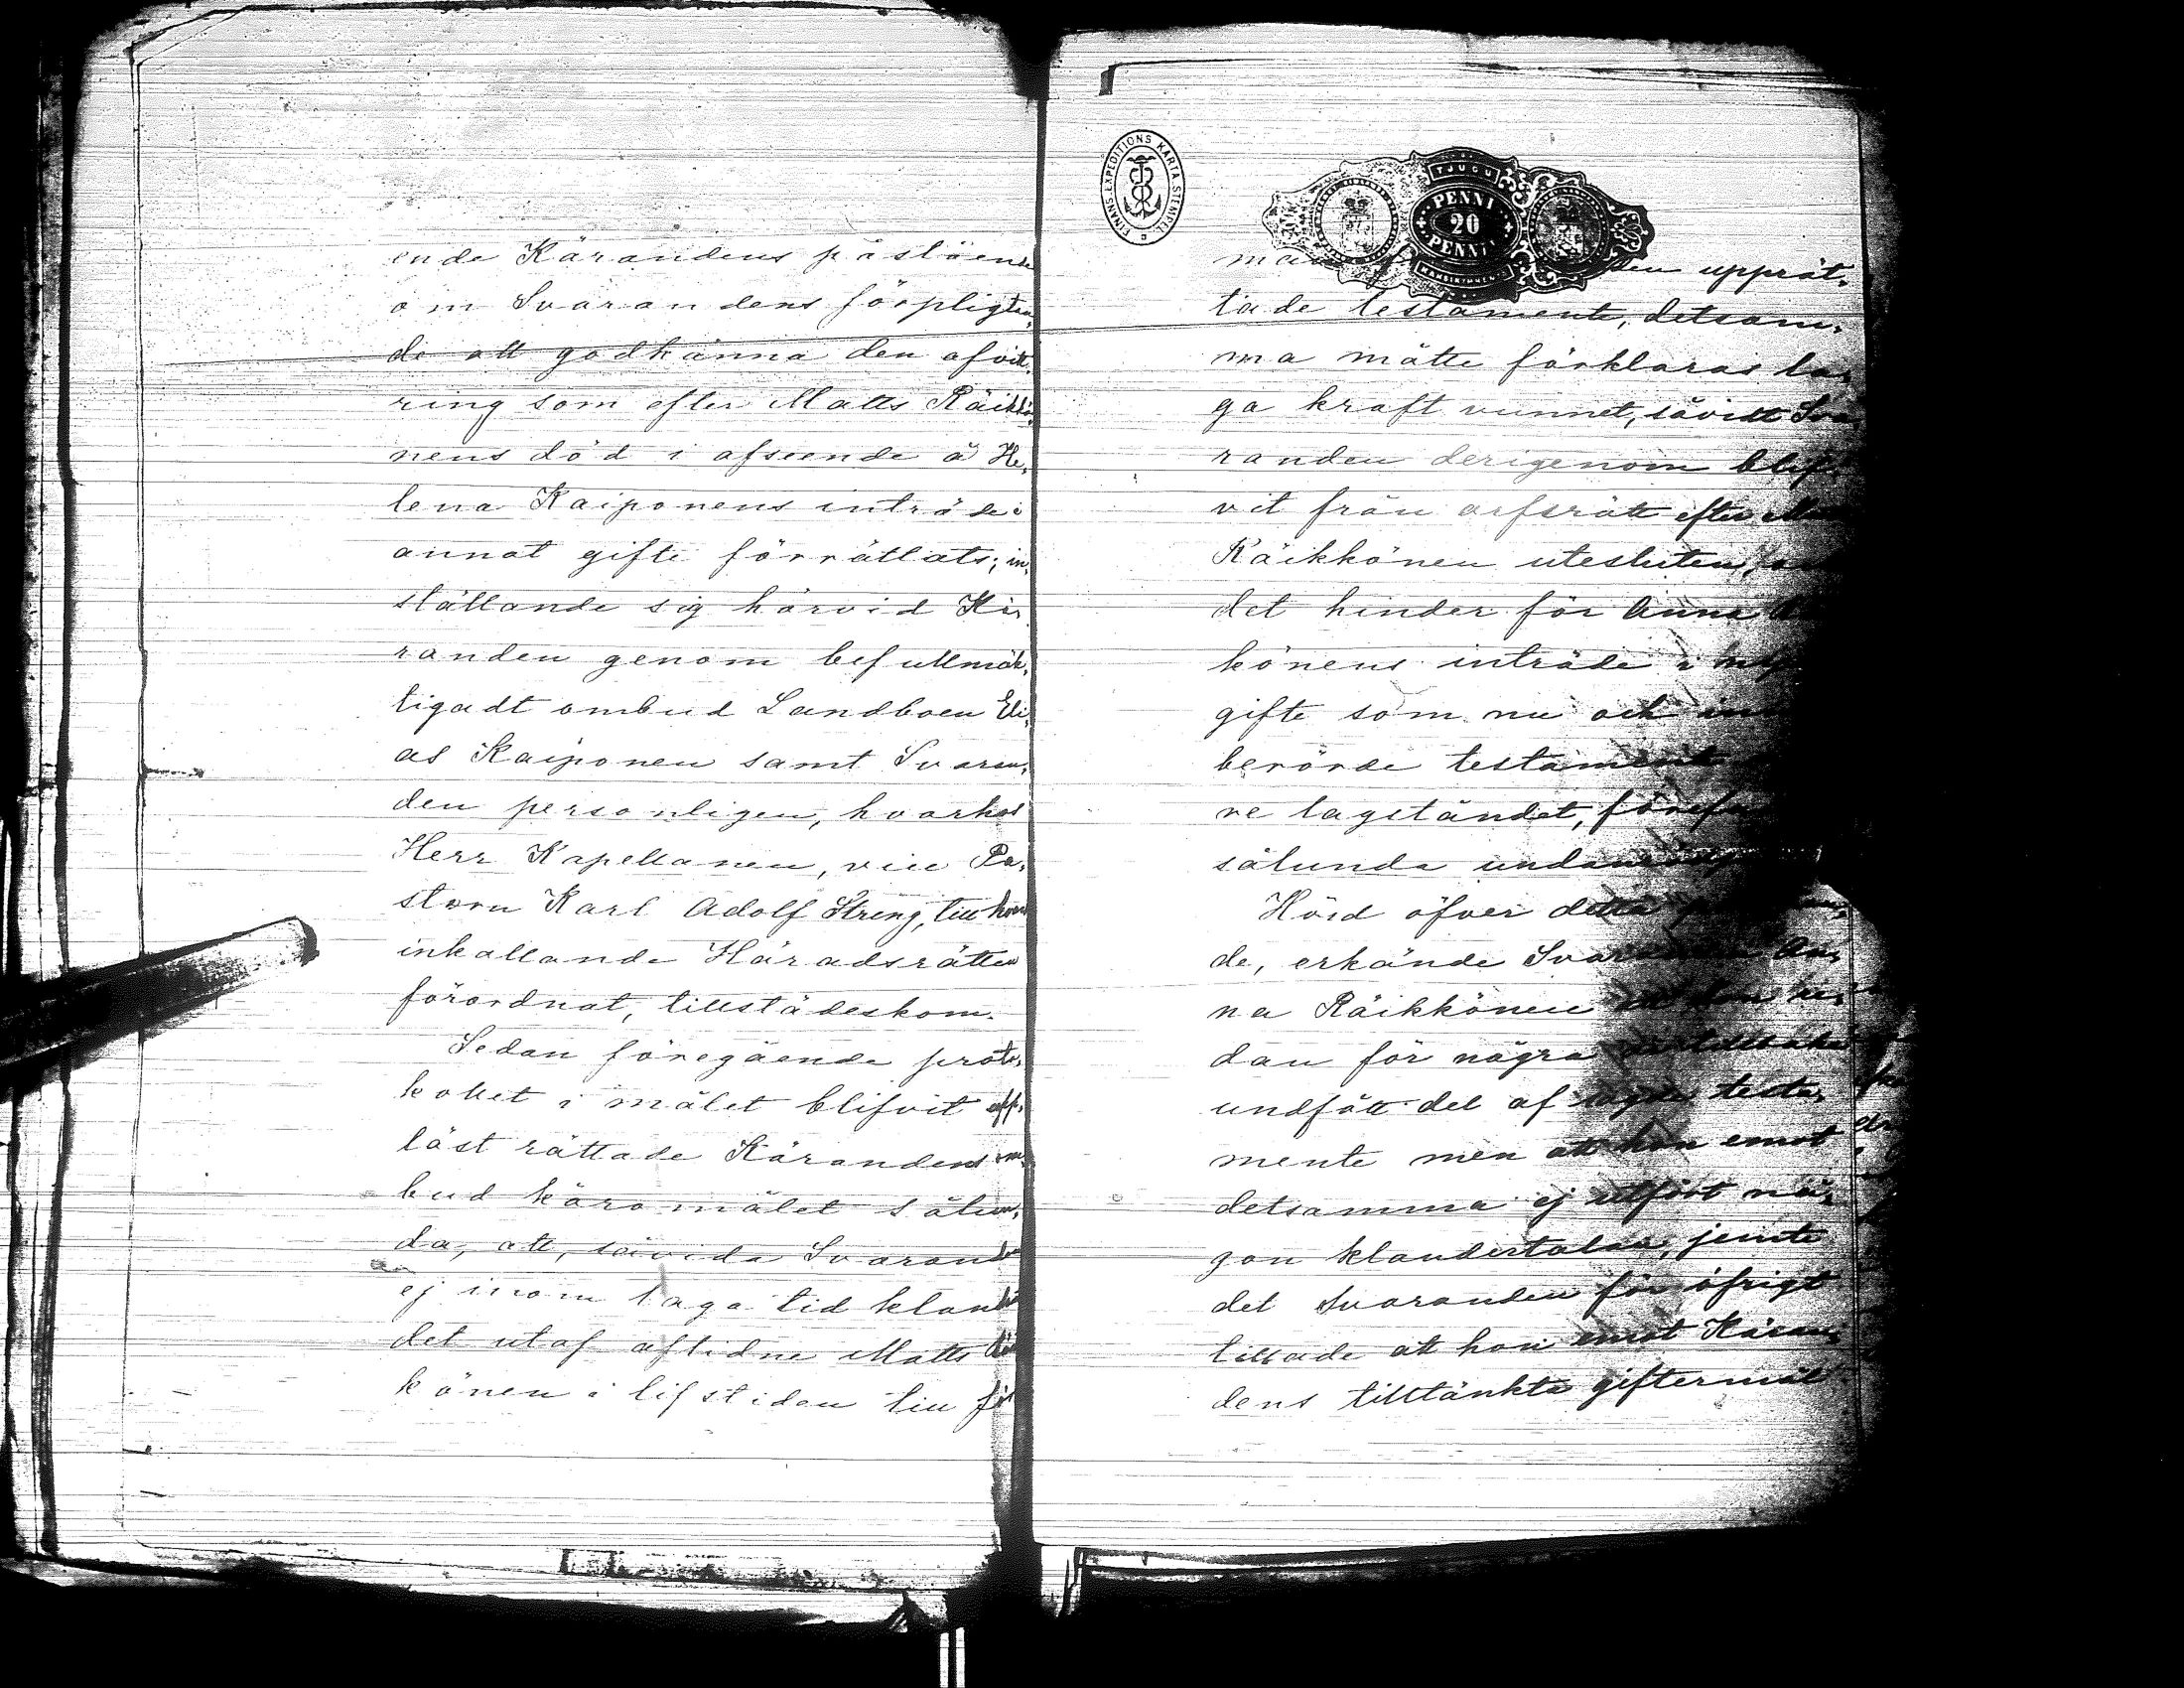 ende Kärandens påstående
om Svarandens förpligtan„
de att godkänna den afvitt„
ring som efter Matts Räikkö„
nens död i afseende å He„
lena Kaiponens inträde i
annat gifte förrättats; in„
ställande sig härvid Kä„
randen genom befullmäk„
tigadt ombud Landboen Eli„
as Kaiponen samt Svaran„
den personligen, hvarhos
Herr Kapellanen, vice Pa„
storn Karl Adolf Streng, till hvars
inkallande Häradsrätten
förordnat, tillstädeskom.
Sedan föregående proto„
kollet i målet blifvit upp„
läst rättade Kärandens om„
bud käromålet sålun„
da, att, såvida Svaranden
ej inom laga tid klan
det utaf aflidne Matts Räik
könen i lifstiden till
FINANS EXPEDITIONS KARTA STEMPEL
TJUGU
PENNI
20
PENNI
upprät„
tade testamente, detsam„
ma måtte förklaras la„
ga kraft vunnet, såvidt Sva„
randen derigenom blif„
vit från arfsrätt efter
Räikkönen utesluten,
det hinder för Anna
könens inträde i
gifte som nu och
berörde testament
re lagståndet,
sålunda
Hörd öfver detta
de, erkände Svaranden An„
na Räikkönen
dan för några
undfått del af sagde testa„
mente men att hon emot
detsamma ej utfört nå„
gon klandertalan, jemte
det Svaranden för öfrigt
tillade att hon emot Käran„
dens tilltänkta giftermål